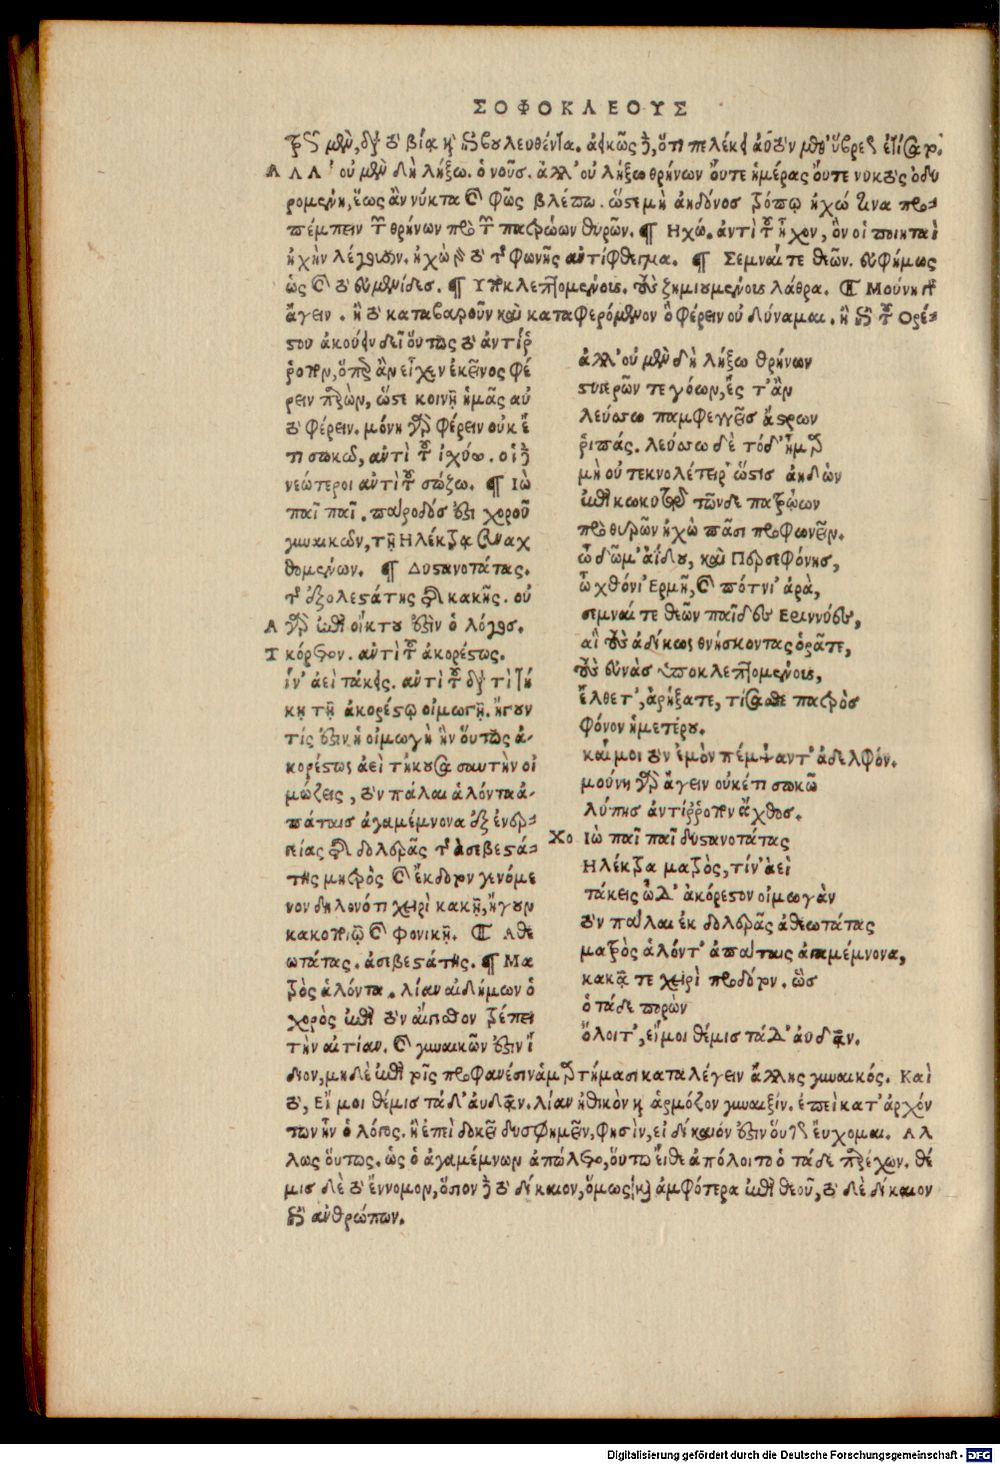 ΣΟΦΟΚΛΕΟΥΣ
βίᾳ βουλευθέντα. ὅτι πελέκει
ΑΛΛ' οὐ μὲν δὴ λήξω. ὁ νοῦς. ἀλλ' οὐ λήξω θρήνων οὔτε ἡμέρας οὔτε νυκτὸς ὀδυ
ρομένη, ἕως ἂν νύκτα καὶ φῶς βλέπω. ὥστε μὴ ἀηδόνος τρόπῳ ἠχώ τινα προ-
πέμπειν τῶν θρήνων πρὸ τῶν πατρώων θυρῶν. ¶ Ηχώ. ἀντὶ τοῦ ἦχον, ὃν οἱ ποιηταὶ
ἠχὴν λέγουσιν. ἠχὼ τὸ τῆς φωνῆς ἀντίφθεγμα. ¶ Σεμναί τε θεῶν. εὐφήμως
ὡς καὶ τὸ εὐμενίδες. ¶ Υποκλεπτομένους. τοὺς ζημιουμένους λάθρα. ¶ Μούνη
ἄγειν. ἢ τὸ καταβαροῦν καὶ καταφερόμενον ὃ φέρειν οὐ δύναμαι. ἢ τοῦ Ορέ-
στου ἀκούειν δεῖ οὕτως τὸ ἀντίρ
ροπον, ὅπερ ἂν εἶχεν ἐκεῖνος φέ
ρειν παρὼν, ὥστε κοινῇ ἡμᾶς αὐ
τὸ φέρειν. μόνη γὰρ φέρειν οὐκ ἔ
τι σωκῶ, ἀντὶ τοῦ ἰσχύω. οἱ δὲ
νεώτεροι ἀντὶ τοῦ σώζω. ¶ Ιὼ
παῖ παῖ. πάροδός ἐστι χοροῦ
γυναικῶν, τῇ Ηλέκτρᾳ συναχ
θομένων. ¶ Δυστανοτάτας.
τῆς ἐξολεστάτης καὶ κακῆς. οὐ
Α γὰρ ἐπὶ οἴκτου ἐστὶν ὁ λόγος.
Τ κόρεστον. ἀντὶ τοῦ ἀκορέστως.
ἵν' ἀεὶ τάκεις. ἀντὶ τοῦ διὰ τί τή
κῃ τῇ ἀκορέστῳ οἰμωγῇ. ἤγουν
τίς ἐστιν ἡ οἰμωγὴ ἣν οὕτως ἀ-
κορέστως ἀεὶ τήκουσα σαυτὴν οἰ
μώζεις, τὸν πάλαι ἁλόντα ἀ-
πάταις ἀγαμέμνονα ἐξ ἐνεδρ-
είας καὶ δολερᾶς τῆς ἀσεβεστά-
της μητρὸς καὶ ἔκδοτον γενόμε
νον δηλονότι χειρὶ κακῇ, ἤγουν
κακοποιῷ καὶ φονικῇ. ¶ Αθε
ωτάτας. ἀσεβεστάτης. ¶ Μα
τρὸς ἁλόντα. λίαν αἰδήμων ὁ
χορὸς ἐπὶ τὸν αἴγισθον τρέπει
τὴν αἰτίαν. καὶ γυναικῶν ἐστιν ἴ
διον, μηδὲ ἐπὶ τοῖς προφανέσιν ἁμαρτήμασι καταλέγειν ἄλλης γυναικός. Καὶ
τὸ, Εἴ μοι θέμις τάδ' αὐδᾶν. λίαν ἠθικὸν καὶ ἁρμόζον γυναιξίν. ἐπεὶ κατ' ἀρχόν
των ἦν ὁ λόγος. ἢ ἐπεὶ δοκεῖ δυσφημεῖν, φησὶν, εἰ δίκαιόν ἐστιν οὕτως εὔχομαι. ΑΛ
λως οὕτως. ὡς ὁ ἀγαμέμνων ἀπώλετο, οὕτω εἴθε ἀπόλοιτο ὁ τάδε παρέχων. θέ
μις δὲ τὸ ἔννομον, ὅσιον δὲ τὸ δίκαιον, ὅμως καὶ ἀμφότερα ἐπὶ θεοῦ, τὸ δὲ δίκαιον
ἀνθρώπων.
ἀλλ' οὐ μὲν δὴ λήξω θρήνων
στυγερῶν τε γόων, ἔς τ' ἂν
λεύσσω παμφεγγεῖς ἄστρων
ῥιπάς. λεύσσω δὲ τόδ' ἦμαρ
μὴ οὐ τεκνολέτειρ' ὥς τις ἀηδὼν
ἐπὶ κωκυτῷ τῶνδε πατρῴων
πρὸ θυρῶν ἠχὼ πᾶσι προφωνεῖν.
ὦ δῶμ' ἀΐδου, καὶ Περσεφόνης,
ὦ χθόνι' Ερμῆ, καὶ πότνι' ἀρὰ,
σεμναί τε θεῶν παῖδες Εριννύες,
αἳ τοὺς ἀδίκως θνήσκοντας ὁρᾶτε,
τοὺς εὐνὰς ὑποκλεπτομένους,
ἔλθετ', ἀρήξατε, τίσασθε πατρὸς
φόνον ἡμετέρου.
καί μοι τὸν ἐμὸν πέμψαντ' ἀδελφόν.
μούνη γὰρ ἄγειν οὐκέτι σωκῶ
λύπης ἀντίρροπον ἄχθος.
Χο Ιὼ παῖ παῖ δυστανοτάτας
Ηλέκτρα ματρὸς, τίν' ἀεὶ
τάκεις ὧδ' ἀκόρεστον οἰμωγὰν
τὸν πάλαι ἐκ δολερᾶς ἀθεωτάτας
ματρὸς ἁλόντ' ἀπάταις ἀγαμέμνονα,
κακᾷ τε χειρὶ πρόδοτον. ὣς
ὁ τάδε πορὼν
ὄλοιτ', εἴ μοι θέμις τάδ' αὐδᾶν.
Digitalisierung gefördert durch die Deutsche Forschungsgemeinschaft - DFG